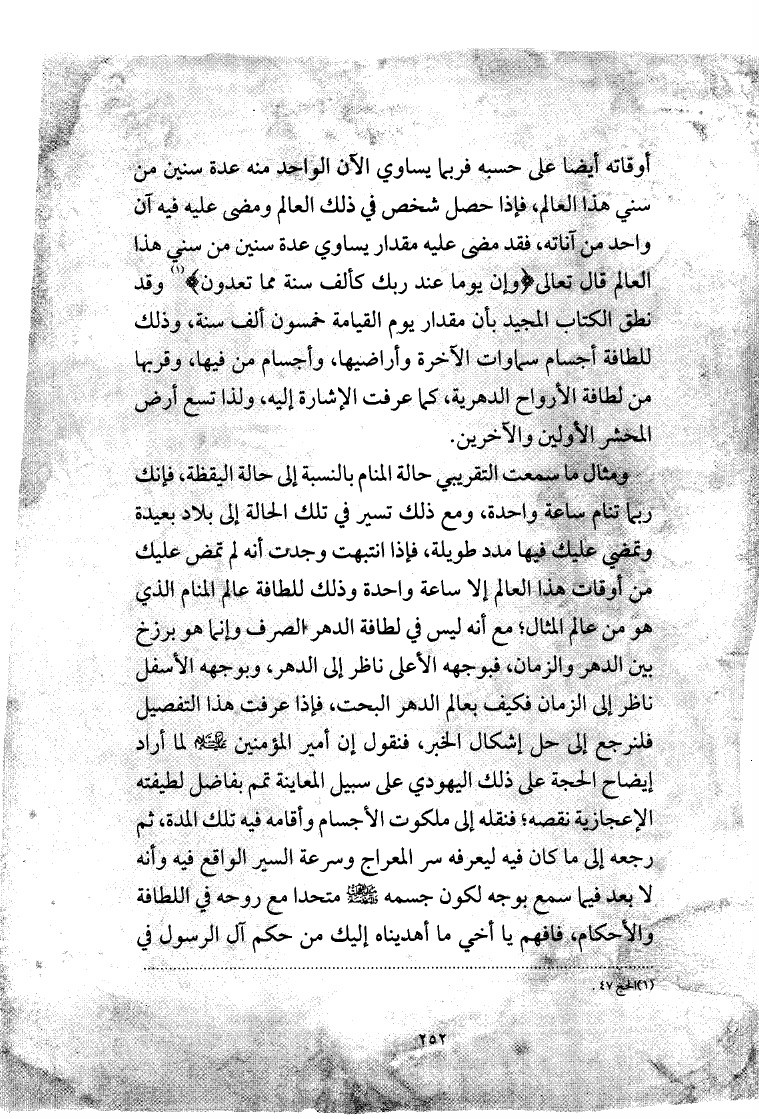 أوقاته أيضا على حسبه فربما يساوي الآن الواحد منه عدة سنين من
سني هذا العالم، فإذا حصل شخص في ذلك العالم ومضى عليه فيه آن
واحد من آناته، فقد مضى عليه مقدار يساوي عدة سنين من سني هذا
العالم قال تعالى ﴿وإن يوما عند ربك كألف سنة مما تعدون﴾(١) وقد
نطق الكتاب المجيد بأن مقدار يوم القيامة خمسون ألف سنة، وذلك
للطافة أجسام سماوات الآخرة وأراضيها، وأجسام من فيها، وقربها
من لطافة الأرواح الدهرية، كما عرفت الإشارة إليه، ولذا تسع أرض
المحشر الأولين والآخرين.
ومثال ما سمعت التقريبي حالة المنام بالنسبة إلى حالة اليقظة، فإنك
ربما تنام ساعة واحدة، ومع ذلك تسير في تلك الحالة إلى بلاد بعيدة
وتمضي عليك فيها مدد طويلة، فإذا انتبهت وجدت أنه لم تمض عليك
من أوقات هذا العالم إلا ساعة واحدة وذلك للطافة عالم المنام الذي
هو من عالم المثال؛ مع أنه ليس في لطافة الدهر الصرف وإنما هو برزخ
بين الدهر والزمان، فبوجهه الأعلى ناظر إلى الدهر، وبوجهه الأسفل
ناظر إلى الزمان فكيف بعالم الدهر البحت، فإذا عرفت هذا التفصيل
فلنرجع إلى حل إشكال الخبر، فنقول إن أمير المؤمنين لما أراد
إيضاح الحجة على ذلك اليهودي على سبيل المعاينة تمم بفاضل لطيفته
الإعجازية نقصه؛ فنقله إلى ملكوت الأجسام وأقامه فيه تلك المدة، ثم
رجعه إلى ما كان فيه ليعرفه سر المعراج وسرعة السير الواقع فيه وأنه
لا بعد فيما سمع بوجه لكون جسمه متحدا مع روحه في اللطافة
والأحكام، فافهم يا أخي ما أهديناه إليك من حكم آل الرسول في
(١) الحج ٤٧ .
٢٥٢